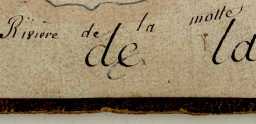 Rivière de la motte
de la